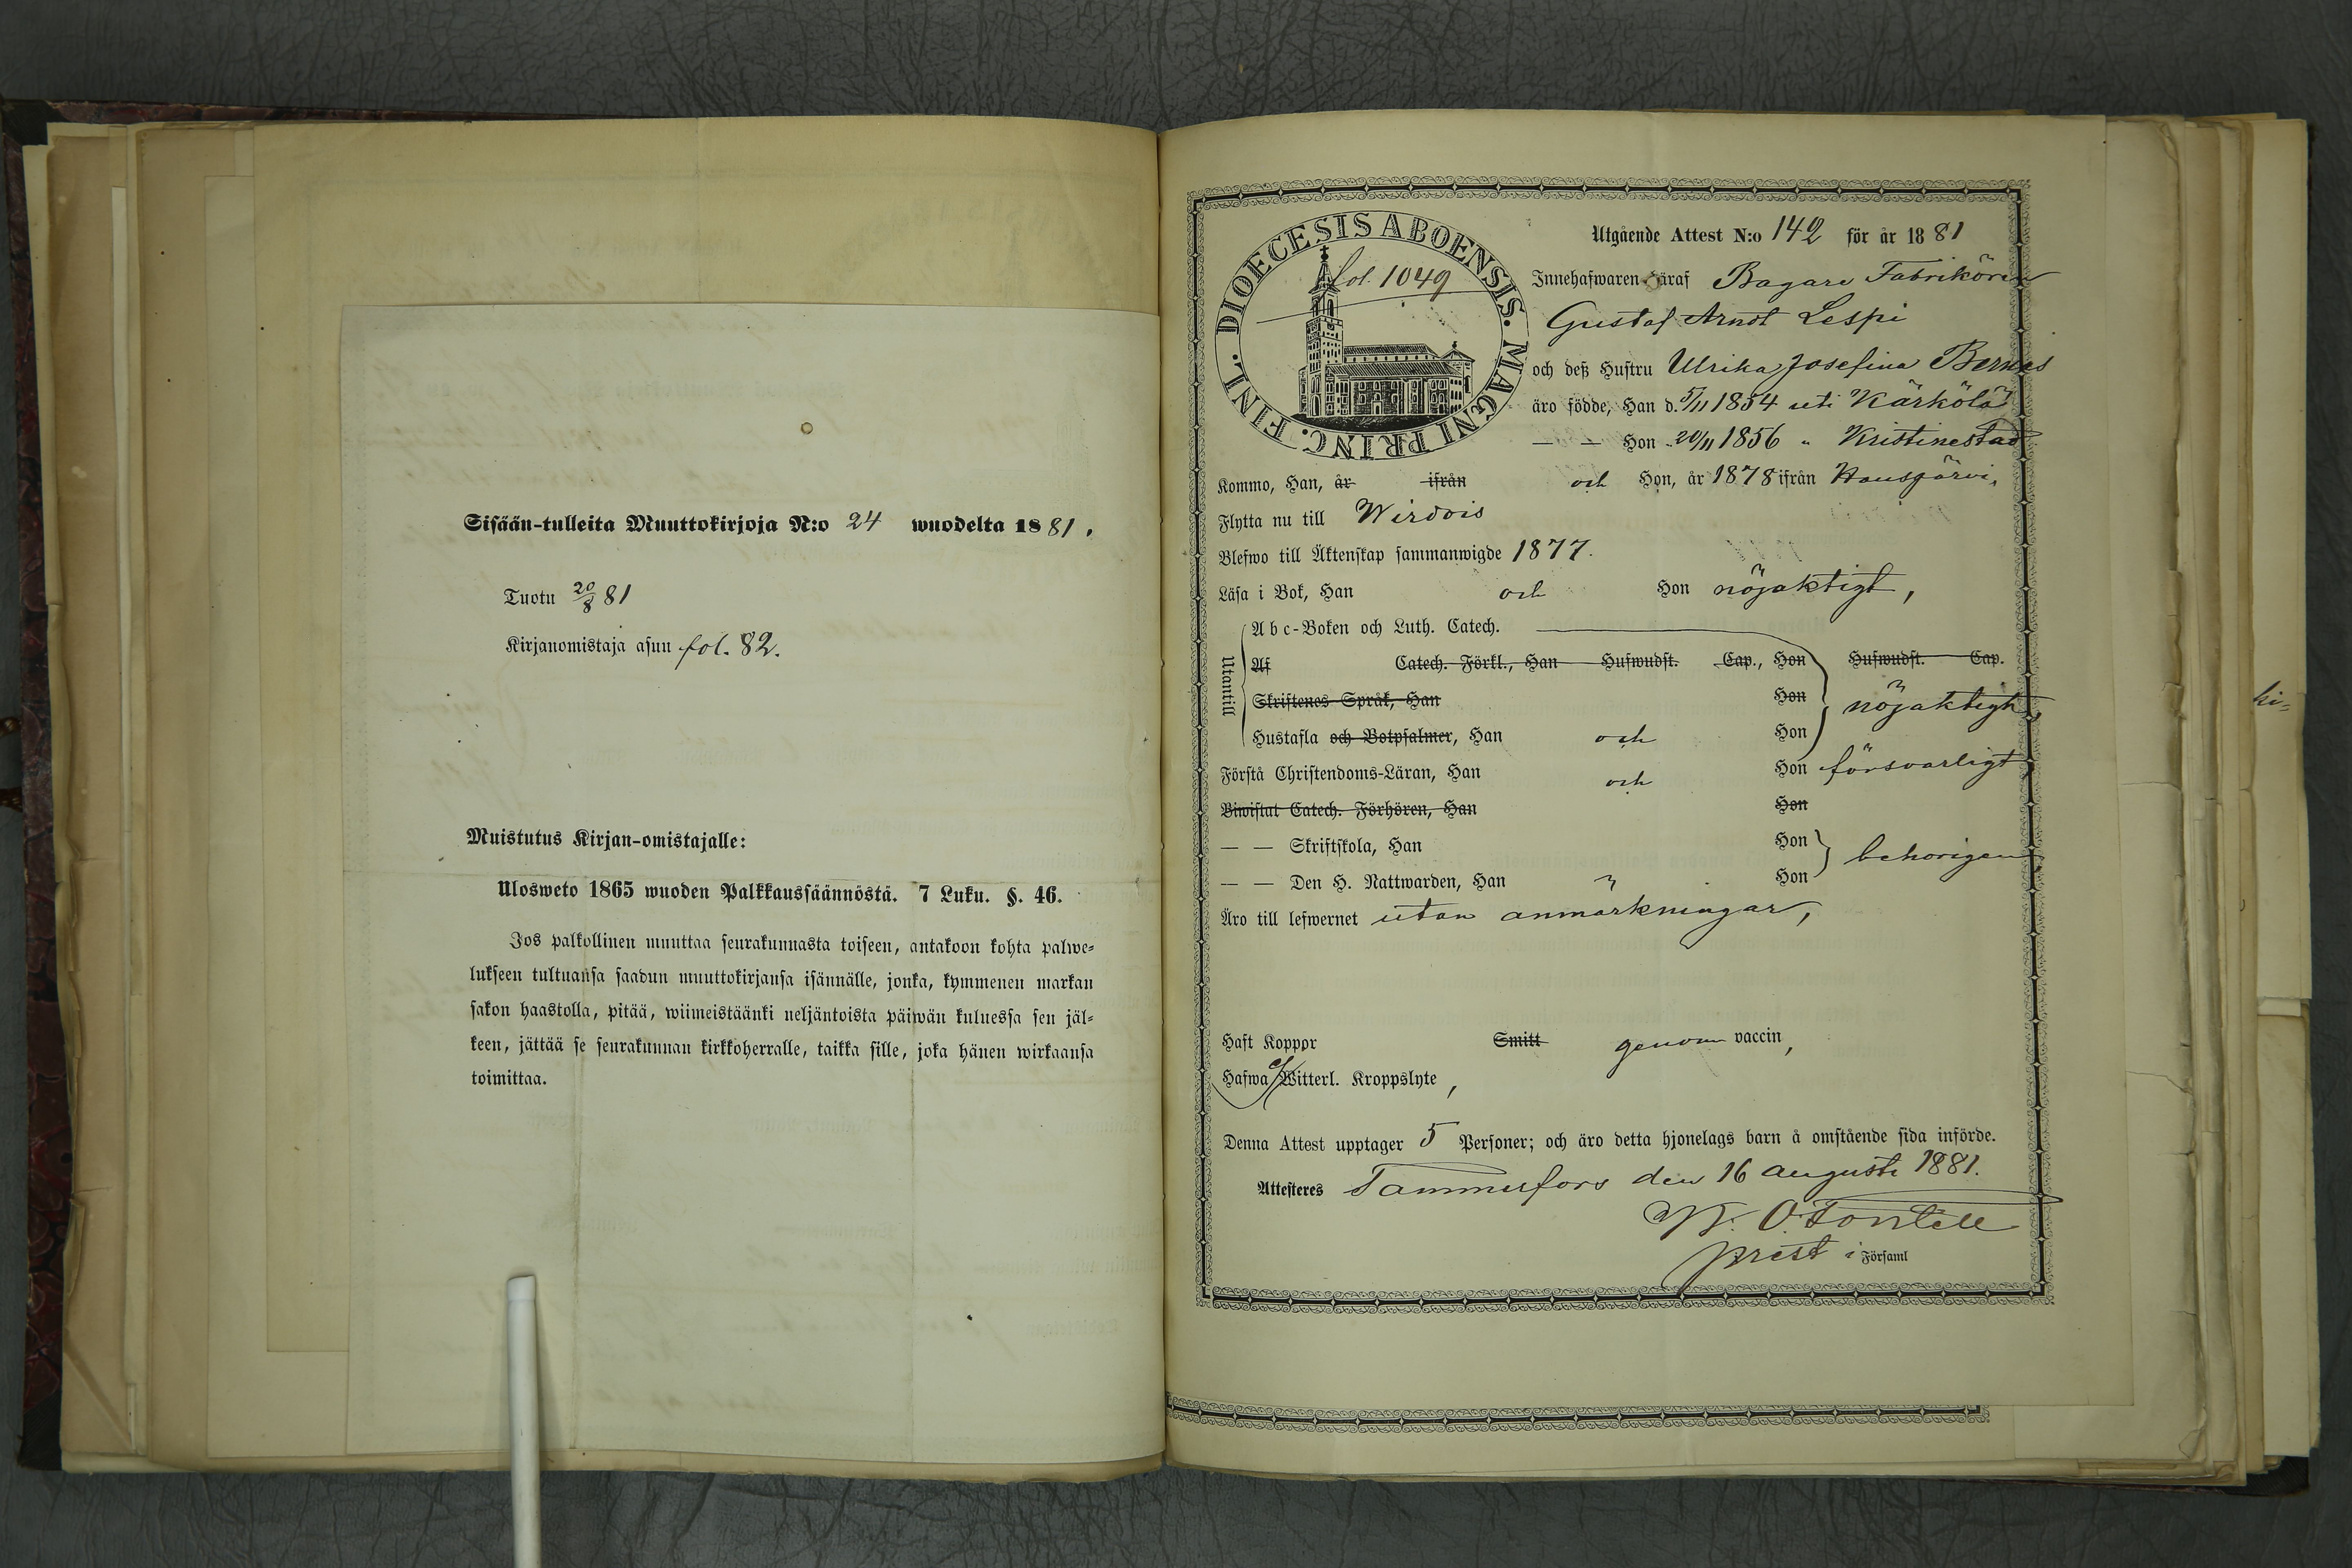 Sisään-tulleita Muuttokirjoja N:o 24 wuodelta 1881.
Tuotu 20/8 81
Kirjanomistaja asuu fol. 82.
Muistutus Kirjan-omistajalle:
Ulosweto 1865 wuoden Palkkaussäännöstä. 7 Luku. §. 46.
Jos palkollinen muuttaa seurakunnasta toiseen, antakoon kohta palwe-
lukseen tultuansa saadun muuttokirjansa isännälle, jonka, kymmenen markan
sakon haastolla, pitää, wiimeistäänki neljäntoista päiwän kuluessa sen jäl-
keen, jättää se seurakunnan kirkkoherralle, taikka sille, joka hänen wirkaansa
toimittaa.
DIOECESIS ABOENSIS. MAGNI PRINC. FINL.
fol. 1049
Utgående Attest N:o 142 för år 1881
Innehafwaren häraf Bagare Fabrikören
Gustaf Arndt Lespi
och deß Hustru Ulrika Josefina Bernes
äro födde, Han d. 5/11 1854 uti Kärkölä
— — Hon " 20/11 1856 " Kristinestad
Kommo, Han, år ifrån och Hon, år 1878 ifrån Hausjärvi,
Flytta nu till Wirdois
Blefwo till Äktenskap sammanwigde 1877.
Läsa i Bok, Han och Hon nöjaktigt,
Utantill
Abc-Boken och Luth. Catech.
Af Catech. Förkl., Han Hufwudst. Cap., Hon Hufwudst. Cap.
Skriftenes Språk, Han Hon nöjaktigt,
Hustafla och Botpsalmer, Han och Hon
Förstå Christendoms-Läran, Han och Hon försvarligt,
Biwistat Catech. Förhören, Han Hon
— — Skriftskola, Han Hon behörigen
— — Den H. Nattwarden, Han " Hon
Äro till lefwernet utan anmärkningar,
Haft Koppor Smitt genom vaccin,
Hafwa ej Witterl. Kroppslyte,
Denna Attest upptager 5 Personer; och äro detta hjonelags barn å omstående sida införde.
Attesteres Tammerfors den 16 augusti 1881.
K. O. Fontell
prest i Församl
ki-